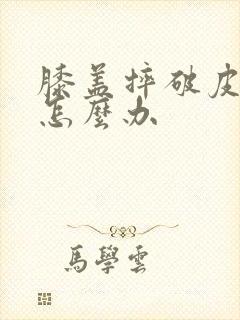 膝盖摔破皮
怎麽办
馬學雲